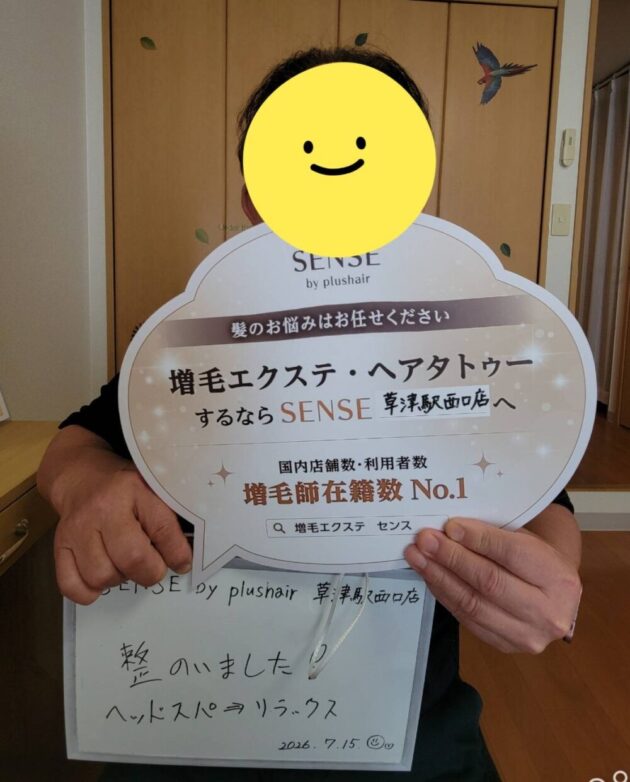 SENSE
by plushair
髪のお悩みはお任せください
増毛エクステ・ヘアタトゥー
するなら SENSE 草津駅西口店へ
国内店舗数・利用者数
増毛師在籍数 No.1
増毛エクステ センス
SENSE by plushair 草津駅西口店
整のいました!!
ヘッドスパ⇒リラックス
2026.7.15